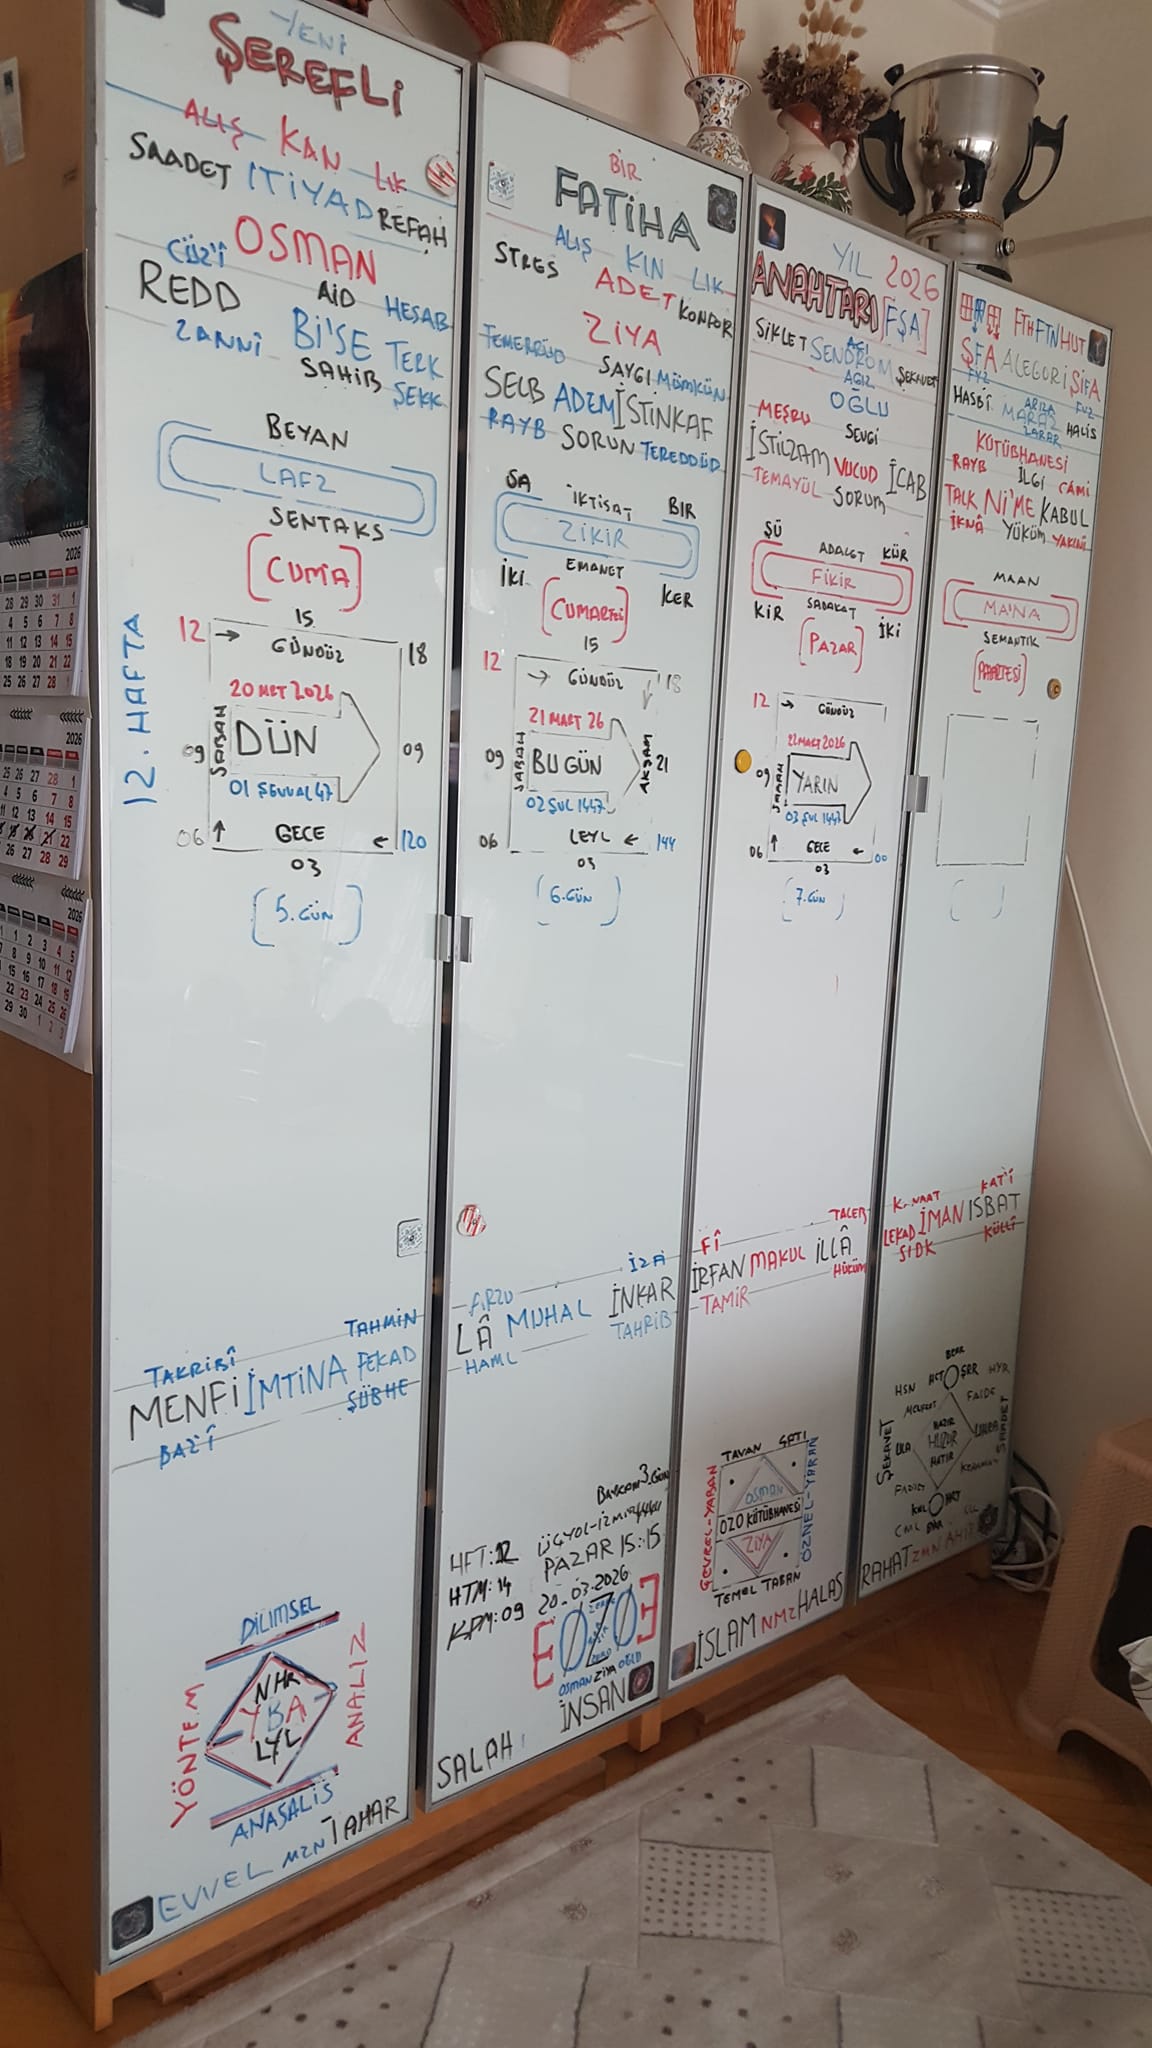 YENİ
ŞEREFLİ
ALIŞ KAN LIK
SAADET İTİYAD REFAH
OSMAN
CÜZ'Î AİD HESAB
REDD Bİ'SE TERK
ZANNİ SAHİB ŞEKK
BEYAN
LAFZ
SENTAKS
[CUMA]
15
12 → GÜNDÜZ 18
20 MRT 2026
09 SABAH DÜN 09
01 ŞEVVAL 47
06 ↑ GECE ← 120
03
[5.GÜN]
12. HAFTA
TAKRİBÎ TAHMİN
MENFİ İMTİNA FEKAD
BAZ'Î ŞÜBHE
DİLİMSEL
YÖNTEM NHR ANALIZ
YBA
LYL
ANASALIS
EVVEL MZN TAHAR
BİR
FATİHA
ALIŞ KIN LIK
STRES ADET KONFOR
ZİYA
TEMERRÜD SAYGI MÜMKÜN
SELB ADEM İSTİNKAF
RAYB SORUN TEREDDÜD
SA İKTİSAT BIR
ZİKİR
İKİ EMANET KER
[CUMARTESİ]
15
12 → GÜNDÜZ 18
21 MART 26
09 SABAH BUGÜN AKŞAM 21
02 ŞVL 1447
06 LEYL ← 144
03
[6.GÜN]
ARZU İZA
LÂ MUHAL İNKAR
HAML TAHRİB
BAYRAM 3.GÜN
HFT:12 ÜÇYOL-İZMİR
HTM:14 PAZAR 15:15
KPM:09 20.03.2026
OSMAN ZİYA OĞLU
SALAH İNSAN
YIL 2026
ANAHTARI [FŞA]
ACI
SIKLET SENDROM ŞEKAVET
AĞIZ
OĞLU
MEŞRU SEVGİ
İSTİLZAM VUCUD İCAB
TEMAYÜL SORUM
ŞÜ ADALET KÜR
FİKİR
KİR SADAKAT İKİ
[PAZAR]
12 → GÜNDÜZ
22 MART 2026
09 SABAH YARIN
03 ŞVL 1447
06 ↑ GECE ← 00
03
[7.GÜN]
FÎ TALEB
İRFAN MAKUL İLLÂ
TAMİR HÜKÜM
TAVAN ÇATI
ÇEVREL-YABAN OSMAN ÖZNEL-YARAN
OZO KÜTÜBHANESİ
ZİYA
TEMEL TABAN
İSLAM NMZ HALAS
FTH FTN HUT
ŞFA ALEGORİ ŞİFA
FYZ ARIZA FUZ
HASBİ MARAZ HALİS
ZARAR
KÜTÜBHANESİ
RAYB İLGİ CAMİ
TALK Nİ'ME KABUL
İKNÂ YÜKÜM YAKINİ
MAAN
MA'NA
SEMANTIK
KANAAT KAT'İ
LEKAD İMAN ISBAT
SIDK KÜLLÎ
HSN HCT ŞRR HYR
FAİDE
ŞEKAVET ULA HAZIR HUZUR HATIR UHRA SAADET
RAHAT ZMN AHIR